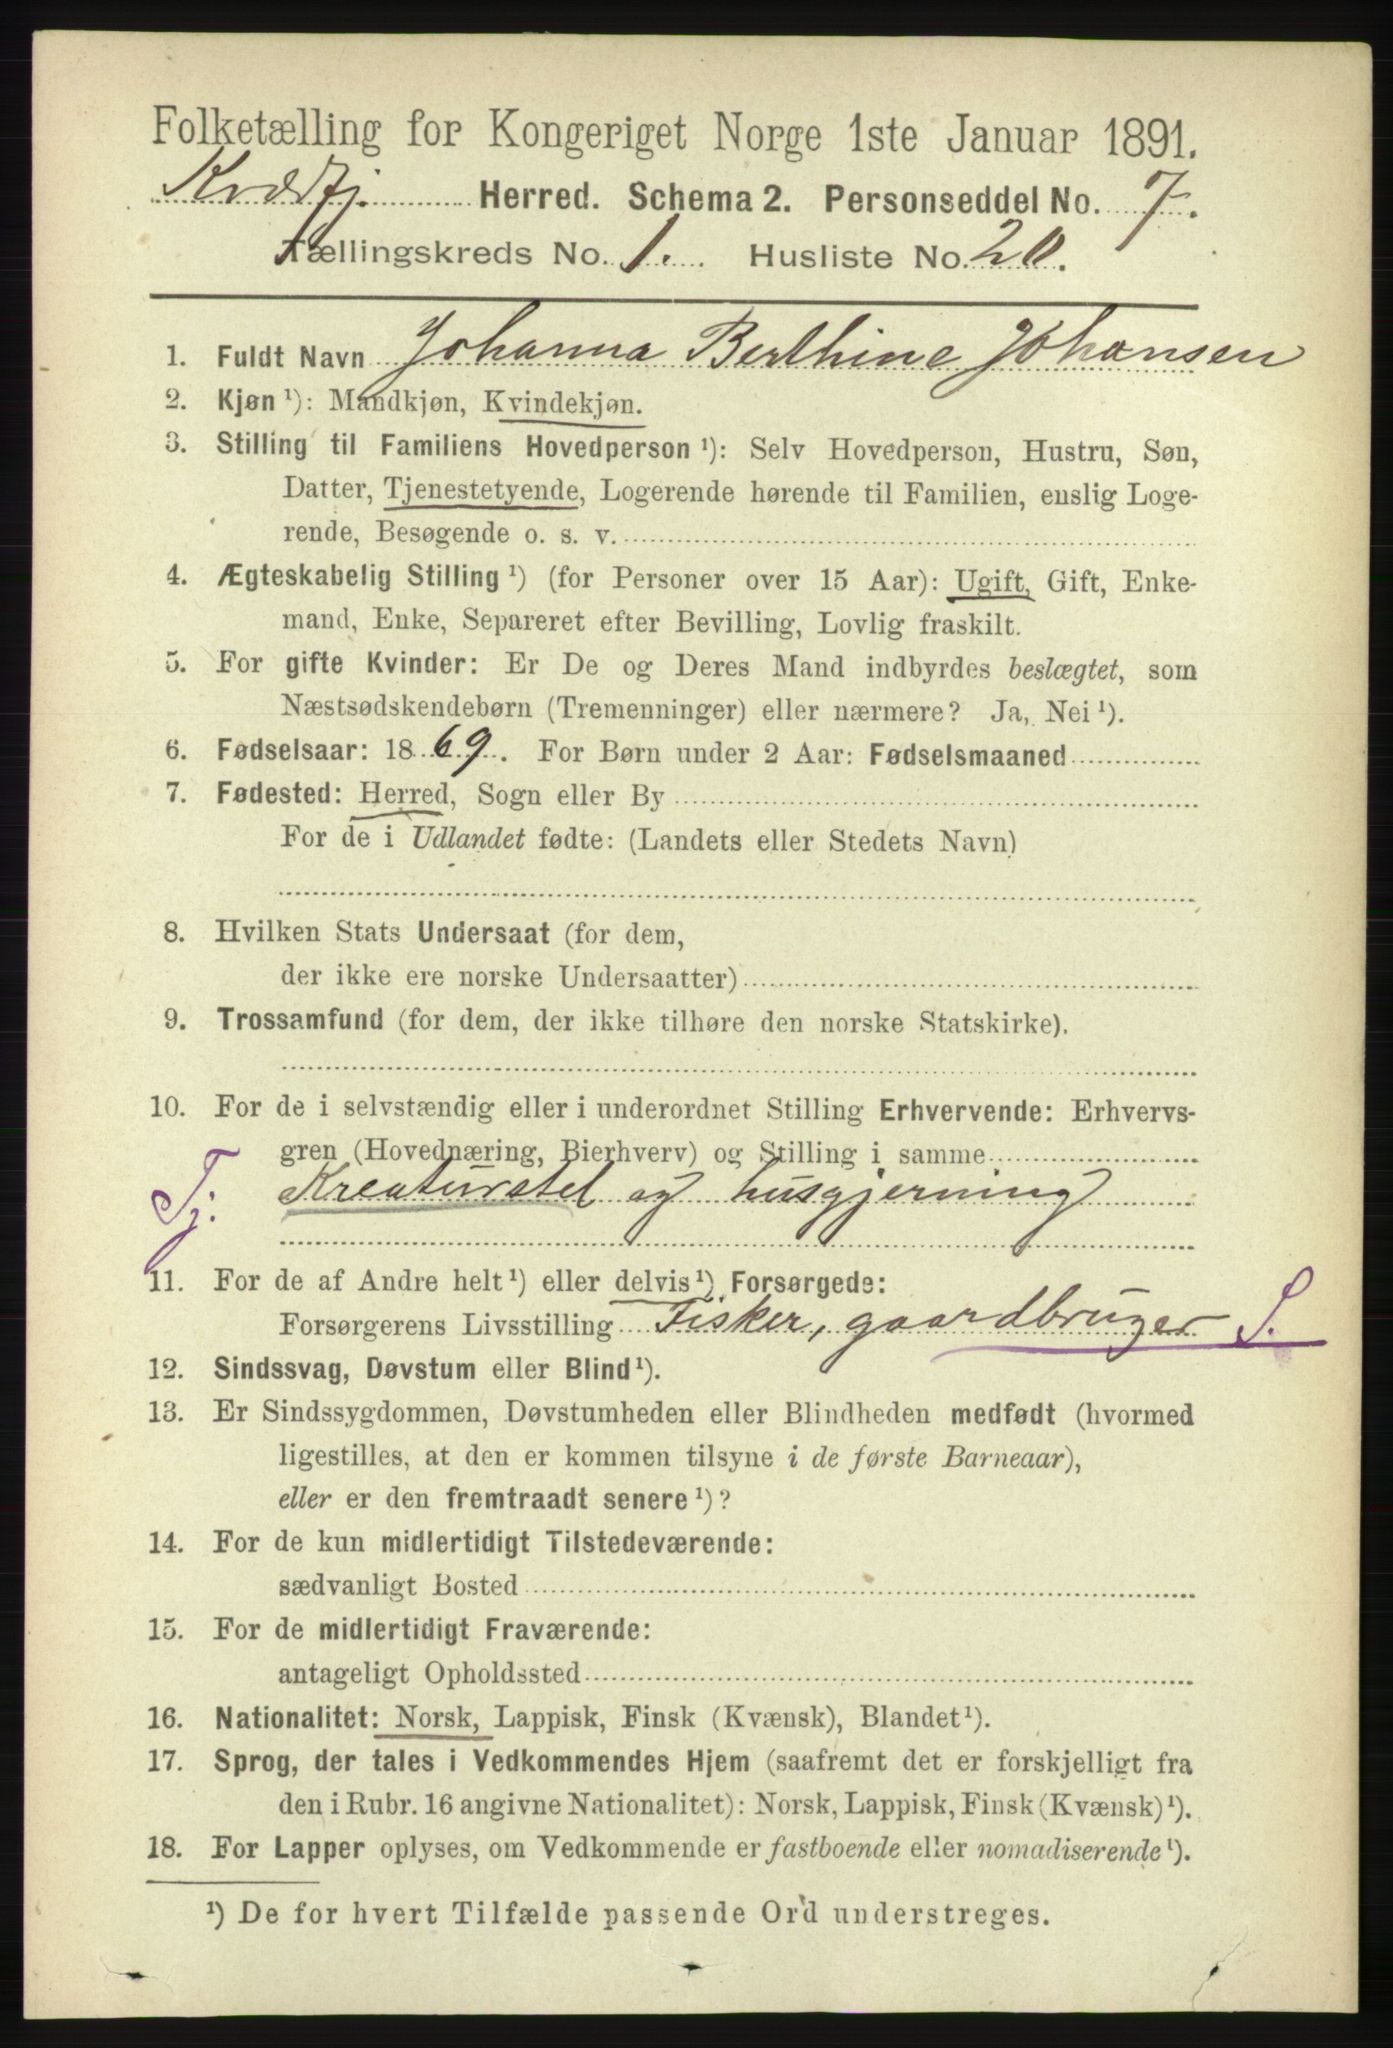 Folketælling for Kongeriget Norge 1ste Januar 1891.
Kvædfj. Herred. Schema 2. Personseddel No. 7.
Tællingskreds No. 1. Husliste No. 20.
1. Fuldt Navn Johanna Berthine Johansen
2. Kjøn ¹): Mandkjøn, Kvindekjøn.
3. Stilling til Familiens Hovedperson ¹): Selv Hovedperson, Hustru, Søn,
Datter, Tjenestetyende, Logerende hørende til Familien, enslig Loge-
rende, Besøgende o. s. v.
4. Ægteskabelig Stilling ¹) (for Personer over 15 Aar): Ugift, Gift, Enke-
mand, Enke, Separeret efter Bevilling, Lovlig fraskilt.
5. For gifte Kvinder: Er De og Deres Mand indbyrdes beslægtet, som
Næstsødskendebørn (Tremenninger) eller nærmere? Ja, Nei ¹).
6. Fødselsaar: 1869. For Børn under 2 Aar: Fødselsmaaned
7. Fødested: Herred, Sogn eller By
For de i Udlandet fødte: (Landets eller Stedets Navn)
8. Hvilken Stats Undersaat (for dem,
der ikke ere norske Undersaatter)
9. Trossamfund (for dem, der ikke tilhøre den norske Statskirke).
10. For de i selvstændig eller i underordnet Stilling Erhvervende: Erhvervs-
gren (Hovednæring, Bierhverv) og Stilling i samme
Tj. Kreaturstel og husgjerning
11. For de af Andre helt ¹) eller delvis ¹) Forsørgede:
Forsørgerens Livsstilling Fisker, gaardbruger S.
12. Sindssvag, Døvstum eller Blind ¹).
13. Er Sindssygdommen, Døvstumheden eller Blindheden medfødt (hvormed
ligestilles, at den er kommen tilsyne i de første Barneaar),
eller er den fremtraadt senere ¹)?
14. For de kun midlertidigt Tilstedeværende:
sædvanligt Bosted
15. For de midlertidigt Fraværende:
antageligt Opholdssted
16. Nationalitet: Norsk, Lappisk, Finsk (Kvænsk), Blandet ¹).
17. Sprog, der tales i Vedkommendes Hjem (saafremt det er forskjelligt fra
den i Rubr. 16 angivne Nationalitet): Norsk, Lappisk, Finsk (Kvænsk) ¹).
18. For Lapper oplyses, om Vedkommende er fastboende eller nomadiserende ¹).
¹) De for hvert Tilfælde passende Ord understreges.